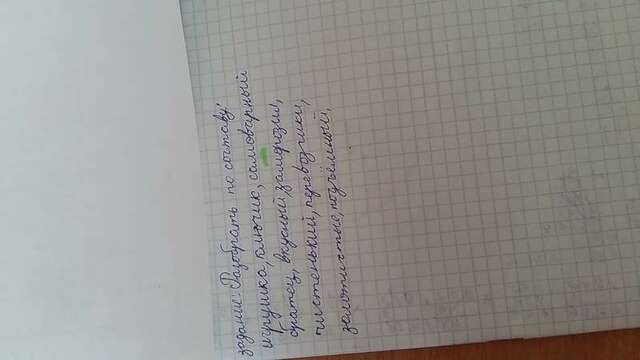 задание: Разобрать по составу:
игрушка, ключик, самоварный
братец, вкусный, замёрзли,
чистенький, перевозчики,
золотистые, подъёмный.